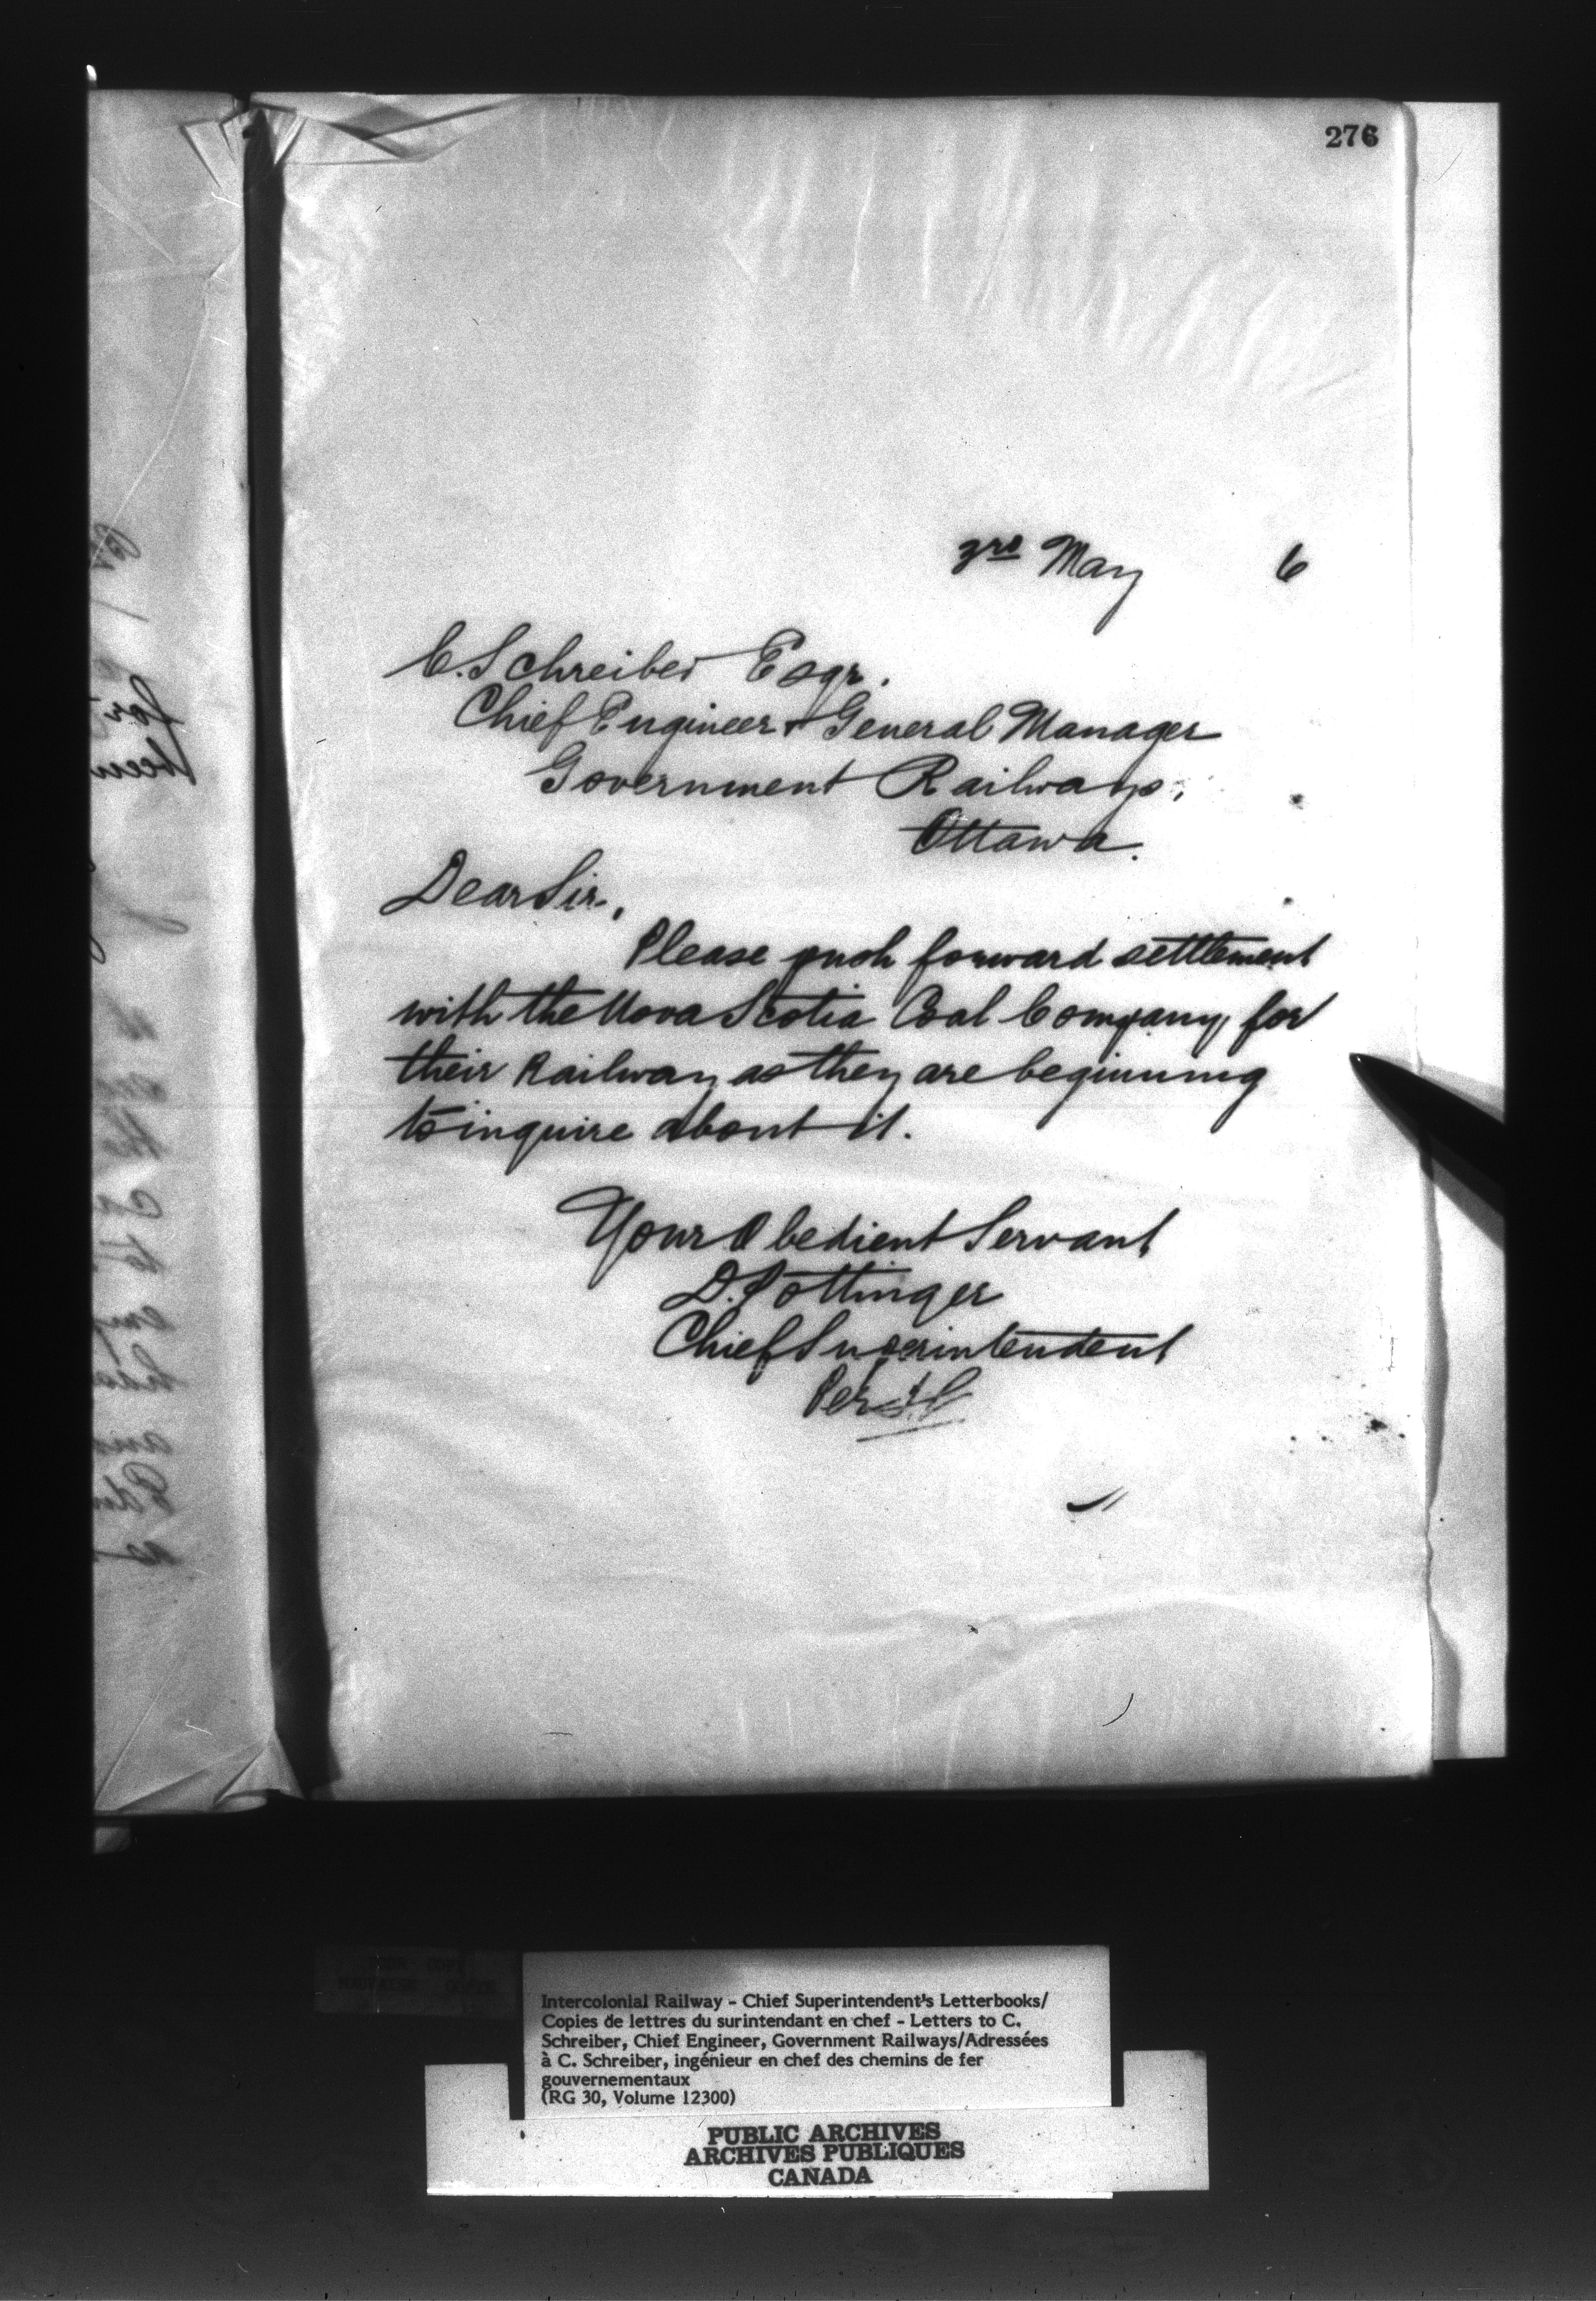 276
3rd May 6
C. Schreiber Esqr.
Chief Engineer & General Manager
Government Railways,
Ottawa.
Dear Sir,
Please push forward settlement
with the Nova Scotia Coal Company for
their Railway as they are beginning
to inquire about it.
Your Obedient Servant
D. Pottinger
Chief Superintendent
Per
Intercolonial Railway - Chief Superintendent's Letterbooks/
Copies de lettres du surintendant en chef - Letters to C.
Schreiber, Chief Engineer, Government Railways/Adressées
à C. Schreiber, ingénieur en chef des chemins de fer
gouvernementaux
(RG 30, Volume 12300)
PUBLIC ARCHIVES
ARCHIVES PUBLIQUES
CANADA